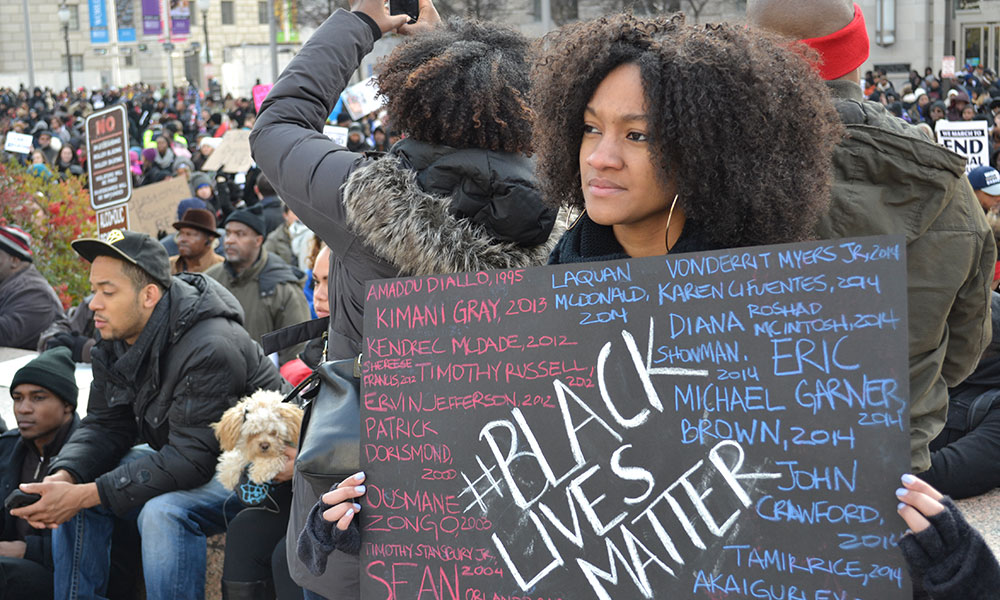 NO
ALCOHOL
WE MARCH TO
END
AMADDU DIALLO, 1995
KIMANI GRAY, 2013
KENDREC MCDADE, 2012
SHEREESE
FRANCIS, 2012
TIMOTHY RUSSELL, 2012
ERVIN JEFFERSON, 2012
PATRICK
DORISMOND,
2000
OUSMANE
ZONGO, 2003
TIMOTHY STANSBURY JR,
2004
SEAN
LAQUAN
MCDONALD,
2014
VONDERRIT MYERS JR, 2014
KAREN CIFUENTES, 2014
DIANA
SHOWMAN,
2014
ROSHAD
MCINTOSH, 2014
ERIC
GARNER
2014
MICHAEL
BROWN, 2014
JOHN
CRAWFORD,
2014
TAMIR RICE, 2014
AKAI GURLEY,
#BLACK
LIVES
MATTER